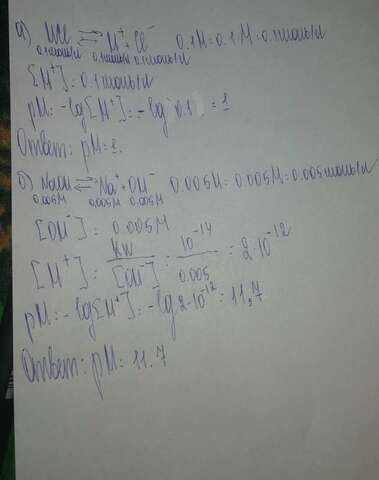 а) HCl ⇄ H⁺ + Cl⁻ 0.1н = 0.1 М = 0.1 моль/л
0.1моль/л 0.1моль/л 0.1моль/л
[H⁺] = 0.1 моль/л
pH = -lg[H⁺] = -lg 0.1 = 1
Ответ: pH =
б) NaOH ⇄ Na⁺ + OH⁻ 0.005н = 0.005М = 0.005 моль/л
0.005М 0.005М 0.005М
[OH⁻] = 0.005М
[H⁺] = Kw / [OH⁻] = 10⁻¹⁴ / 0.005 = 2·10⁻¹²
pH = -lg[H⁺] = -lg 2·10⁻¹² = 11,7
Ответ: pH = 11.7